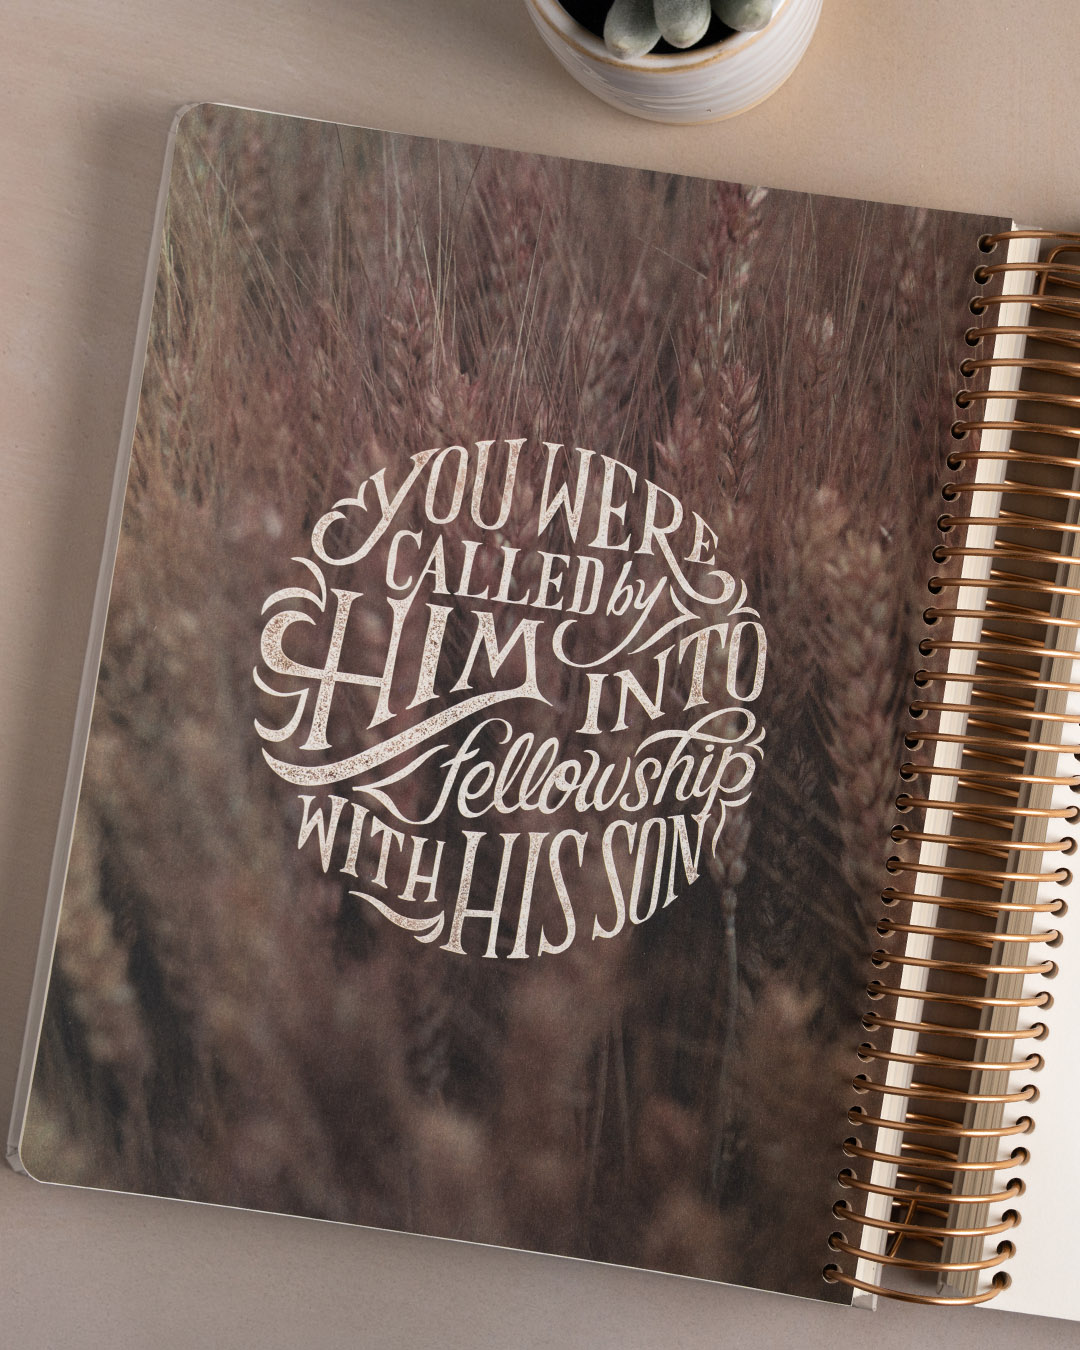 YOU WERE
CALLED by
HIM INTO
fellowship
WITH HIS SON